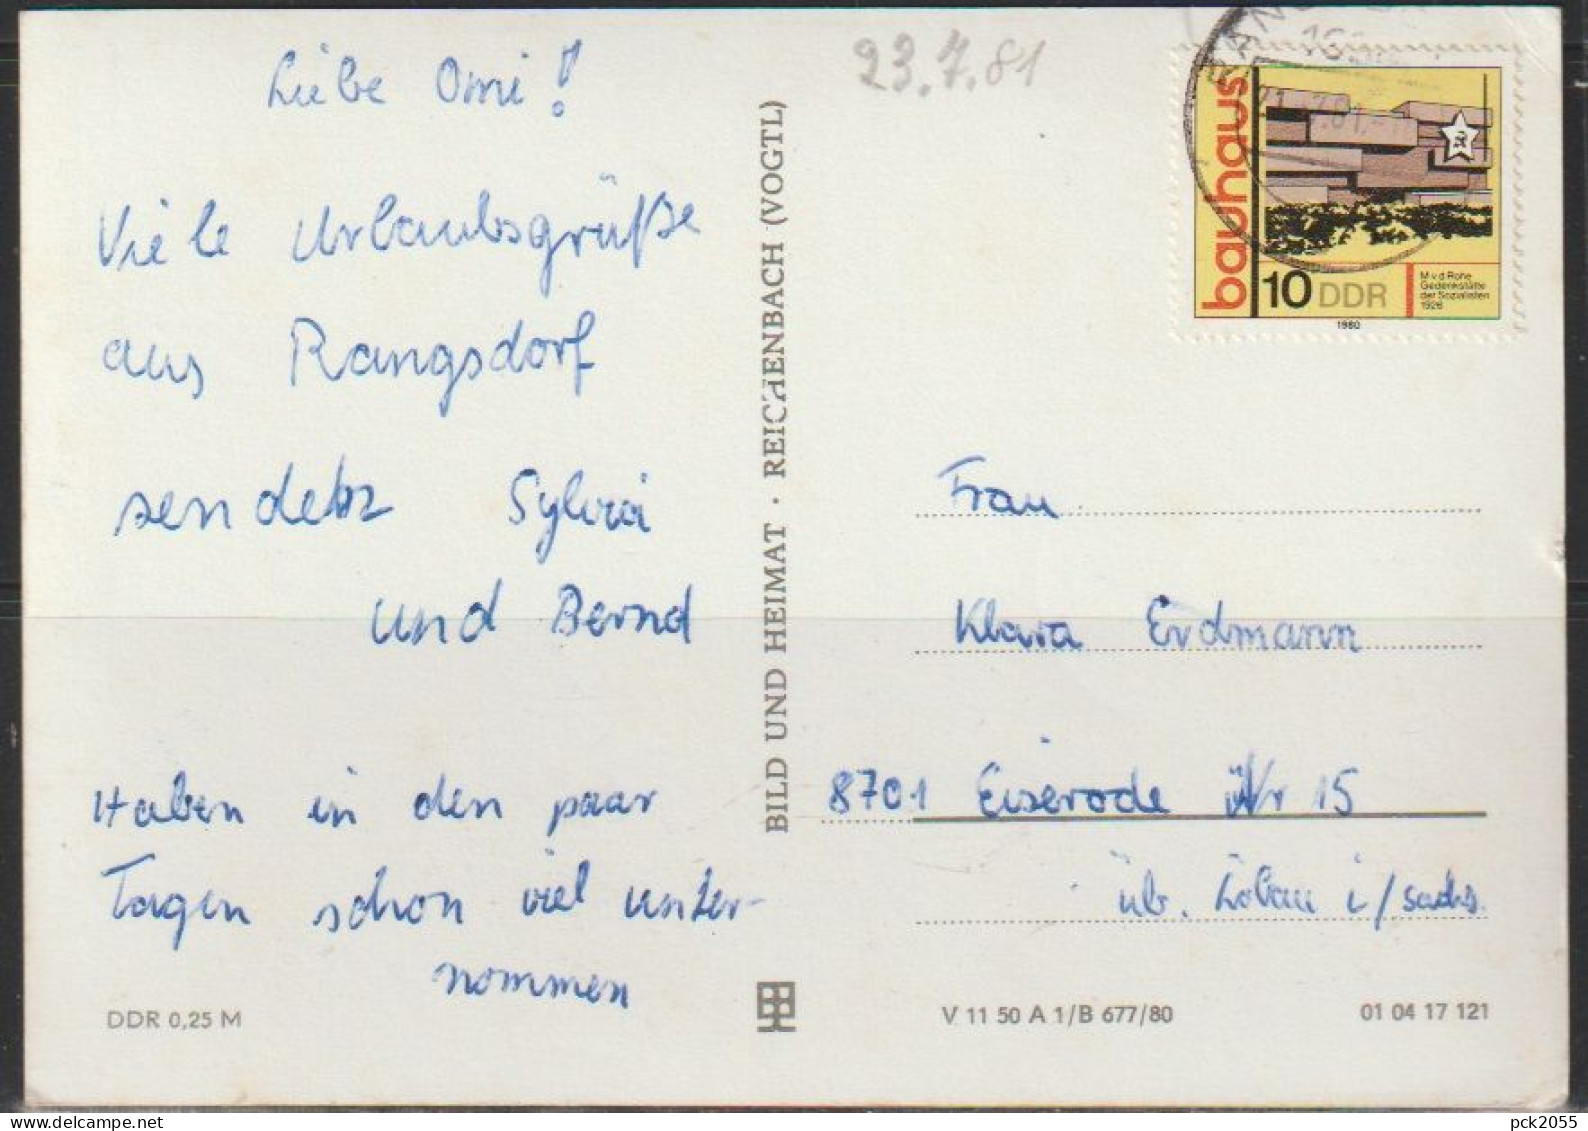 Liebe Omi!
Viele Urlaubsgrüße
aus Rangsdorf
senden Sylvia
und Bernd
Haben in den paar
Tagen schon viel unter-
nommen
DDR 0,25 M
BILD UND HEIMAT · REICHENBACH (VOGTL)
23.7.81
bauhaus
10 DDR
M v d Rohe
Gedenkstätte
der Sozialisten
1926
1980
Frau
Klara Erdmann
8701 Eiserode Nr 15
üb. Löbau i/Sachs.
V 11 50 A 1/B 677/80
01 04 17 121
pck2055